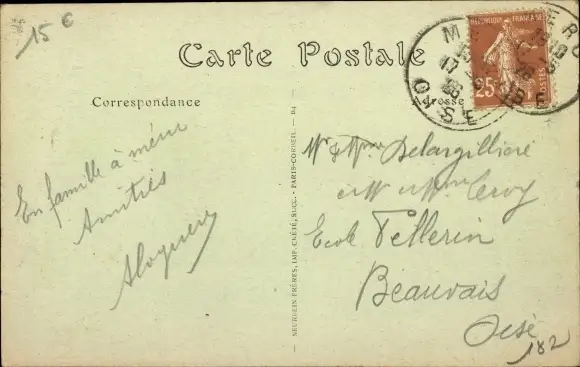 15 €
Carte Postale
Correspondance
Adresse
RÉPUBLIQUE FRANÇAISE
25
POSTES
OISE
En famille à méru
Amitiés
Mr & Mme Delargillière
et Mr et Mme Leroy
Ecole Pellerin
Beauvais
Oise
182
NEURDEIN FRÈRES, IMP. CRÉTÉ, SUCC. - PARIS-CORBEIL - B4